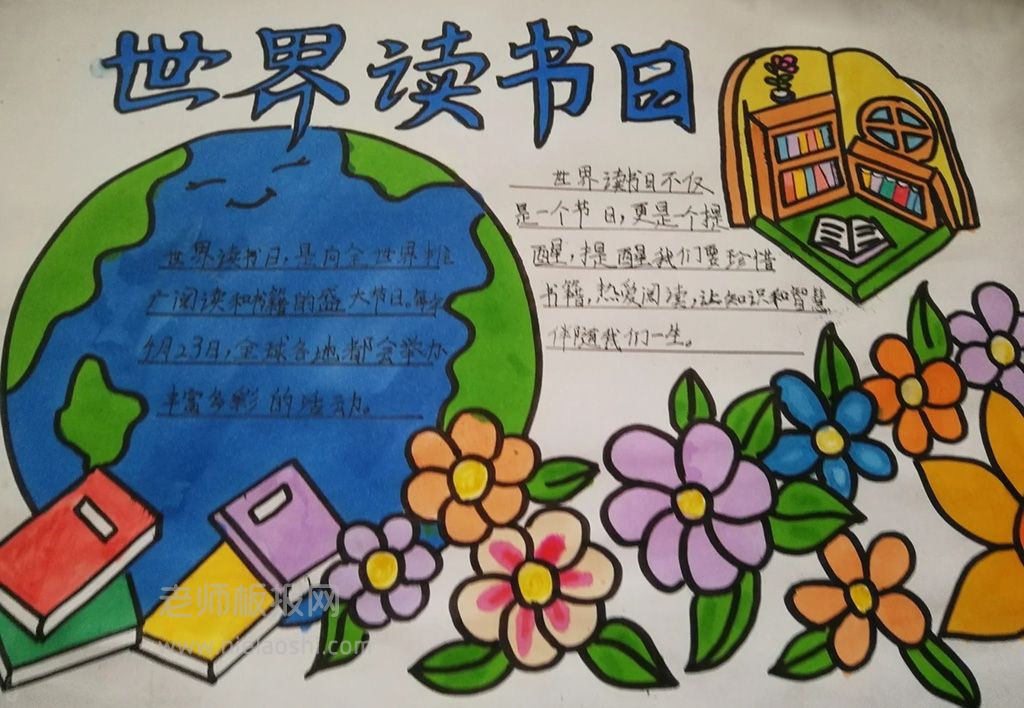 世界读书日
世界读书日，是向全世界推
广阅读和书籍的盛大节日。每年
4月23日，全球各地都会举办
丰富多彩的活动。
世界读书日不仅
是一个节日，更是个提
醒，提醒我们要珍惜
书籍，热爱阅读，让知识和智慧
伴随我们一生。
老师板报网